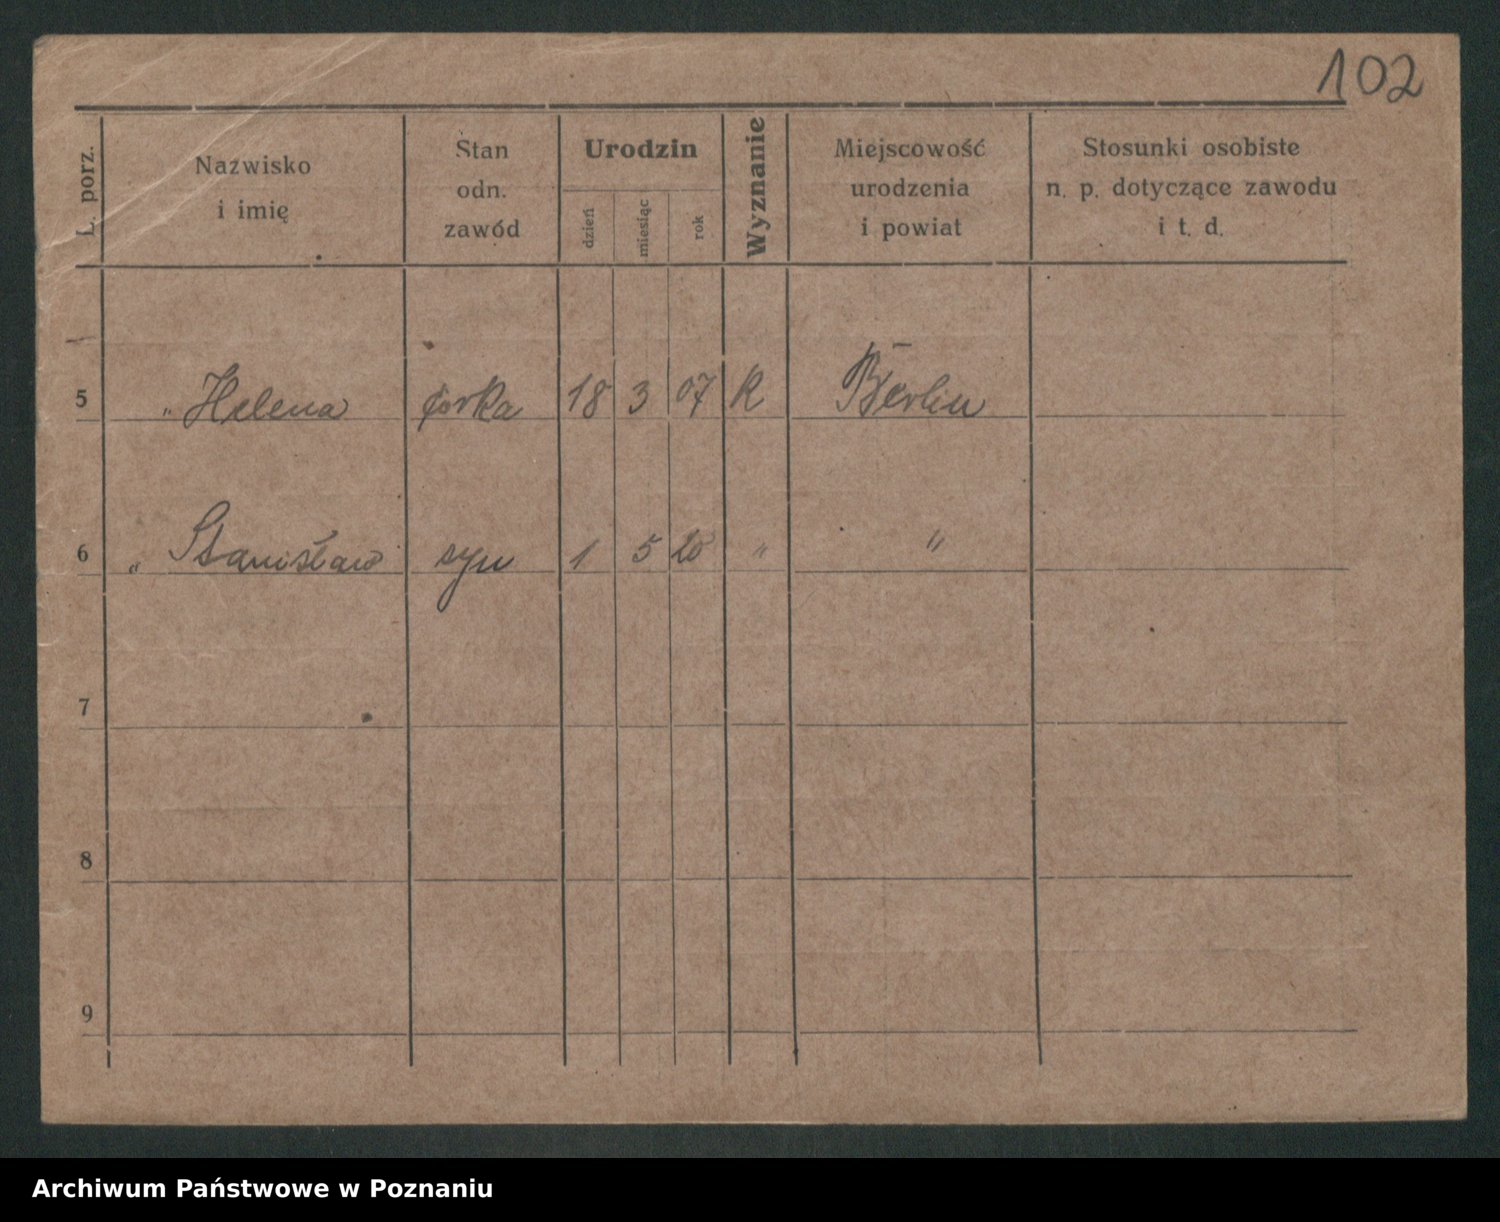 102
L. porz.
Nazwisko
i imię
Stan
odn.
zawód
Urodzin
dzień
miesiąc
rok
Wyznanie
Miejscowość
urodzenia
i powiat
Stosunki osobiste
n. p. dotyczące zawodu
i t. d.
5 " Helena córka 18 3 07 K Berlin
6 " Stanisław syn 1 5 20 " "
7
8
9
Archiwum Państwowe w Poznaniu